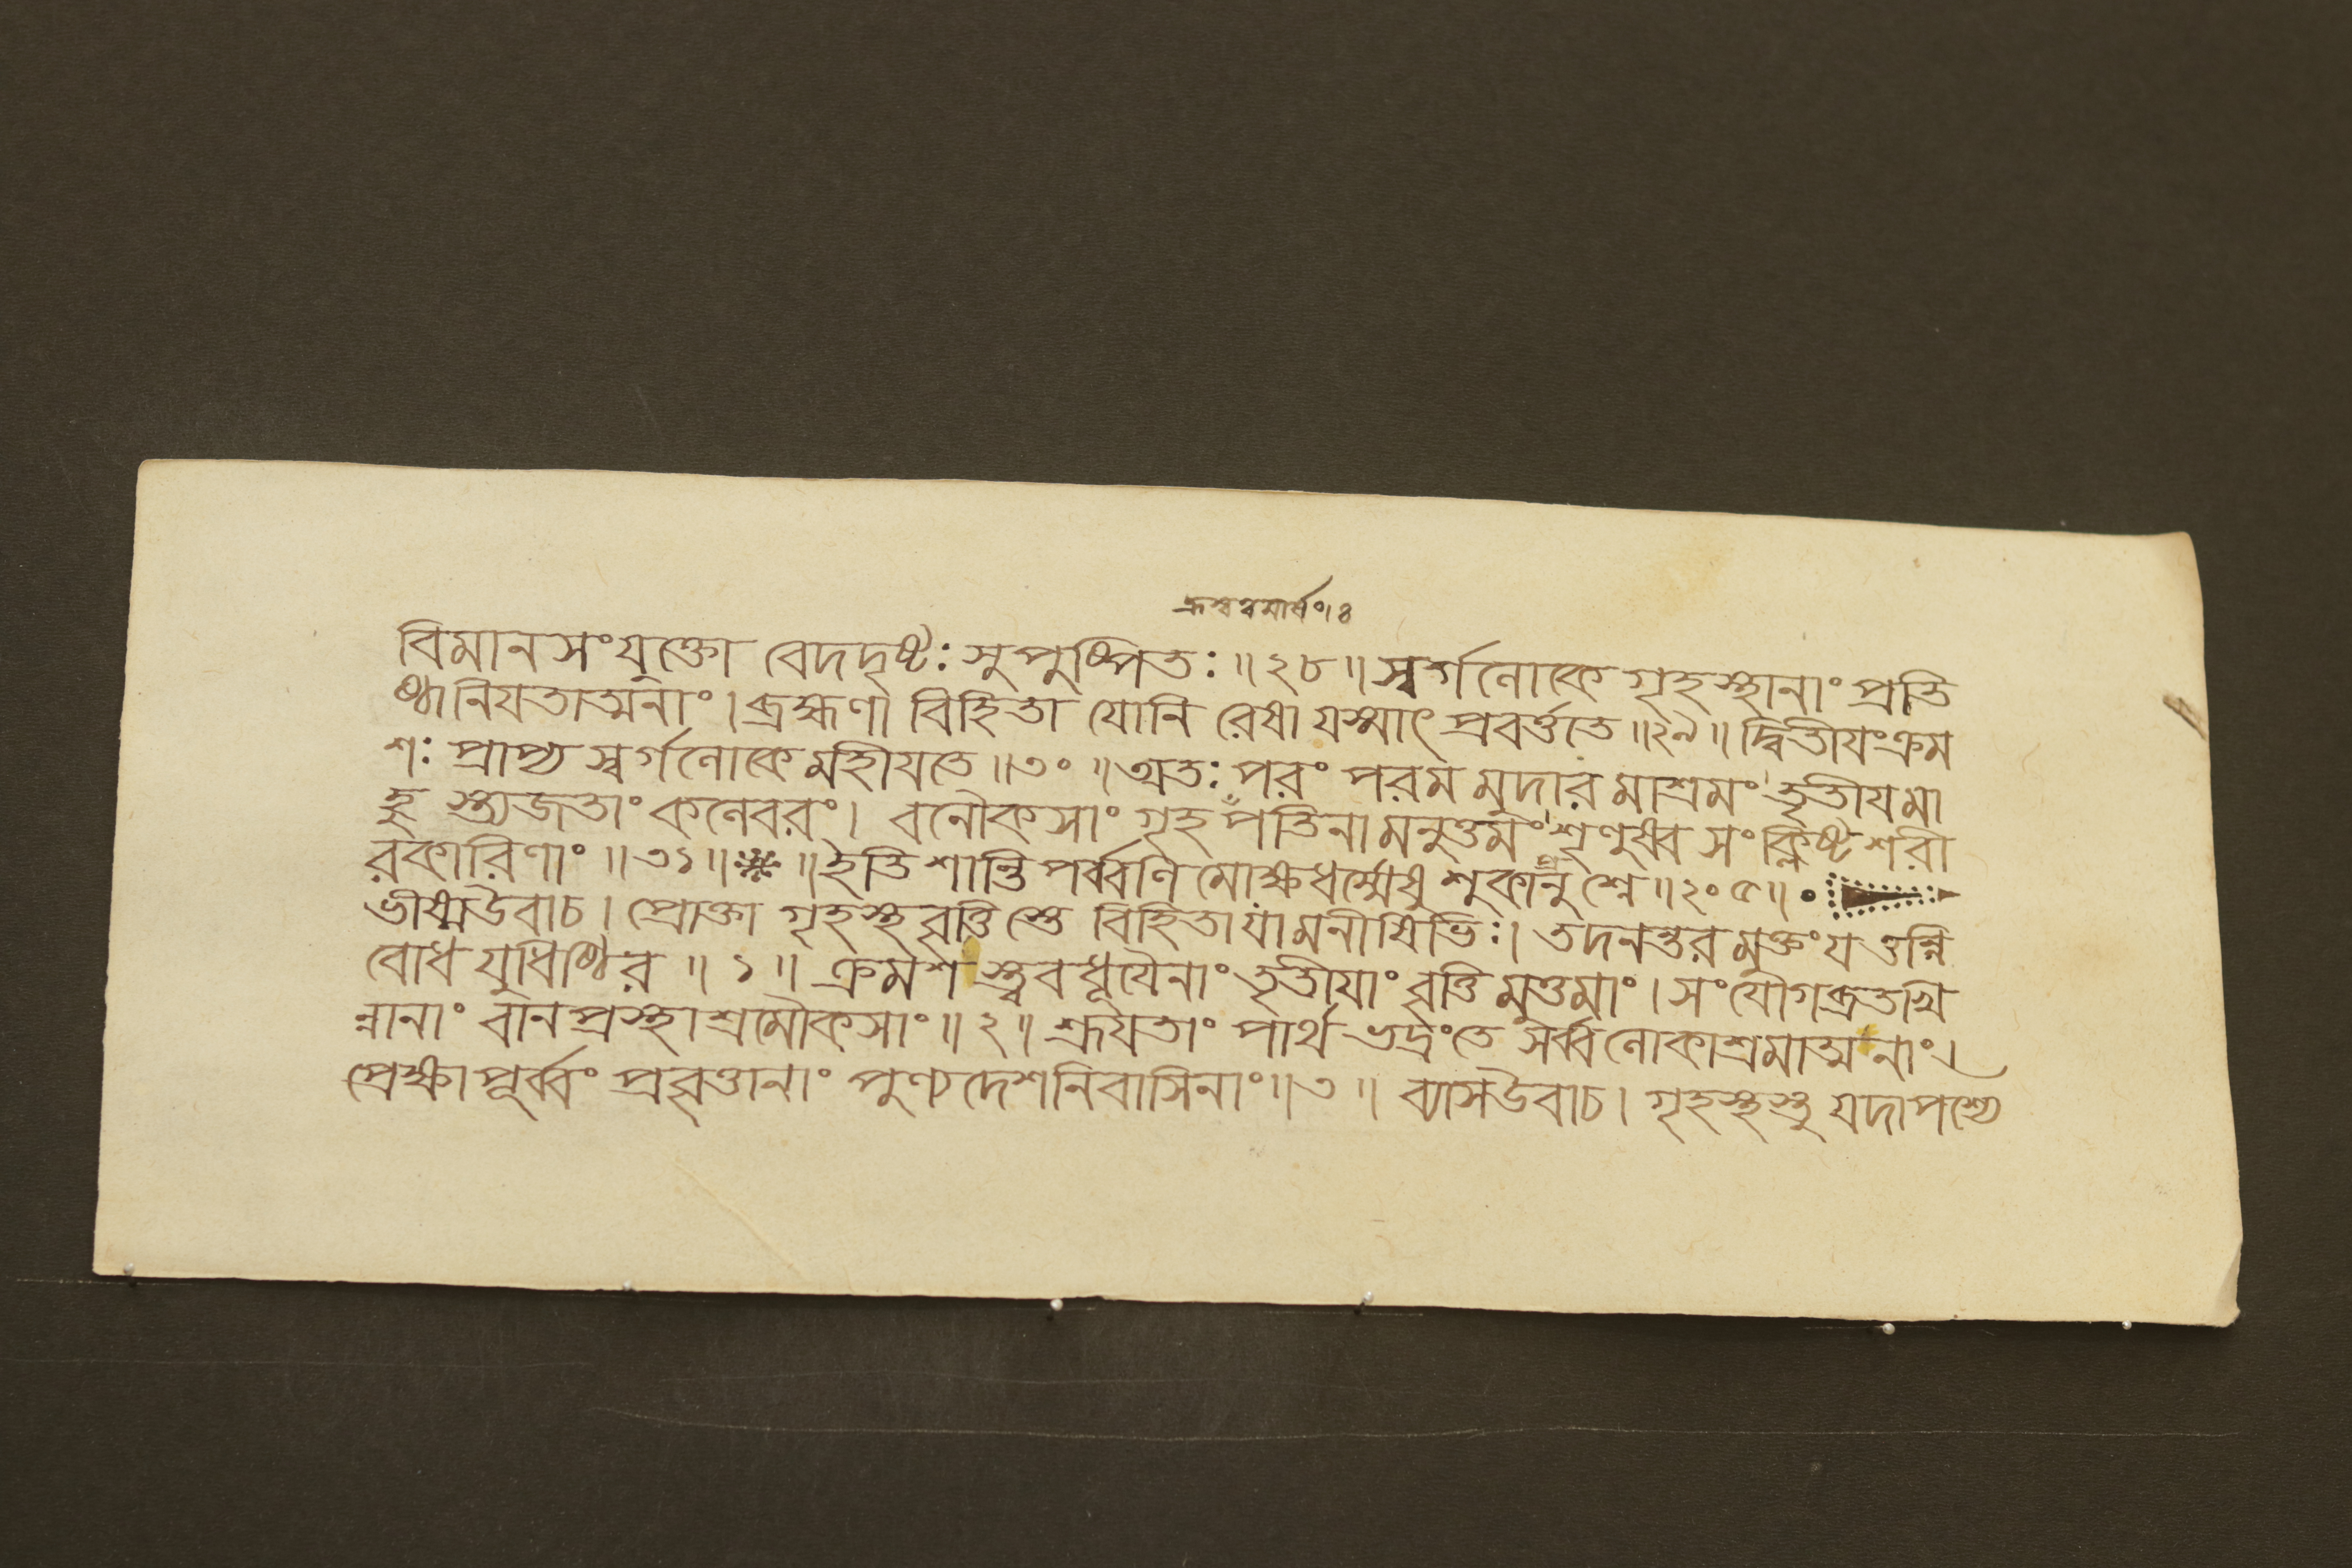 বিমানসংযুক্তো বেদদৃষ্টঃ সুপুষ্পিতঃ ॥ ২৮ ॥ স্বর্গলোকে গৃহস্থানাং প্রতি
ষ্ঠা নিযতাত্মনাং । ব্রহ্মণা বিহিতা যোনি রেষা যস্মাৎ প্রবর্ত্ততে ॥ ২৯ ॥ দ্বিতীযং ক্রম
শঃ প্রাপ্য স্বর্গলোকে মহীযতে ॥ ৩০ ॥ অতঃ পরং পরম মুদার মাশ্রমং তৃতীযমা
হু স্ত্যজতাং কলেবরং । বনৌকসাং গৃহপতিনা মনুত্তমং শৃণুষ্ব সংক্লিষ্টশরী
রকারিণাং ॥ ৩১ ॥ ॥ ইতি শান্তিপর্ব্বণি মোক্ষধর্ম্মেষু শুকানুপ্রশ্নে ॥ ২০৫ ॥
ভীষ্মউবাচ । প্রোক্তা গৃহস্থবৃত্তিস্তে বিহিতা যা মনীষিভিঃ । তদনন্তর মুক্তং যত্তন্নি
বোধ যুধিষ্ঠির ॥ ১ ॥ ক্রমশ স্ত্ববধূযৈনাং তৃতীযাং বৃত্তি মুত্তমাং । সংযোগব্রতখি
ন্নানাং বানপ্রস্থাশ্রমৌকসাং ॥ ২ ॥ শ্রূযতাং পার্থ ভদ্রং তে সর্ব্বলোকাশ্রমাত্মনাং ।
প্রেক্ষাপূর্ব্বং প্রবৃত্তানাং পুণ্যদেশনিবাসিনাং ॥ ৩ ॥ ব্যাসউবাচ । গৃহস্থস্তু যদা পশ্যে